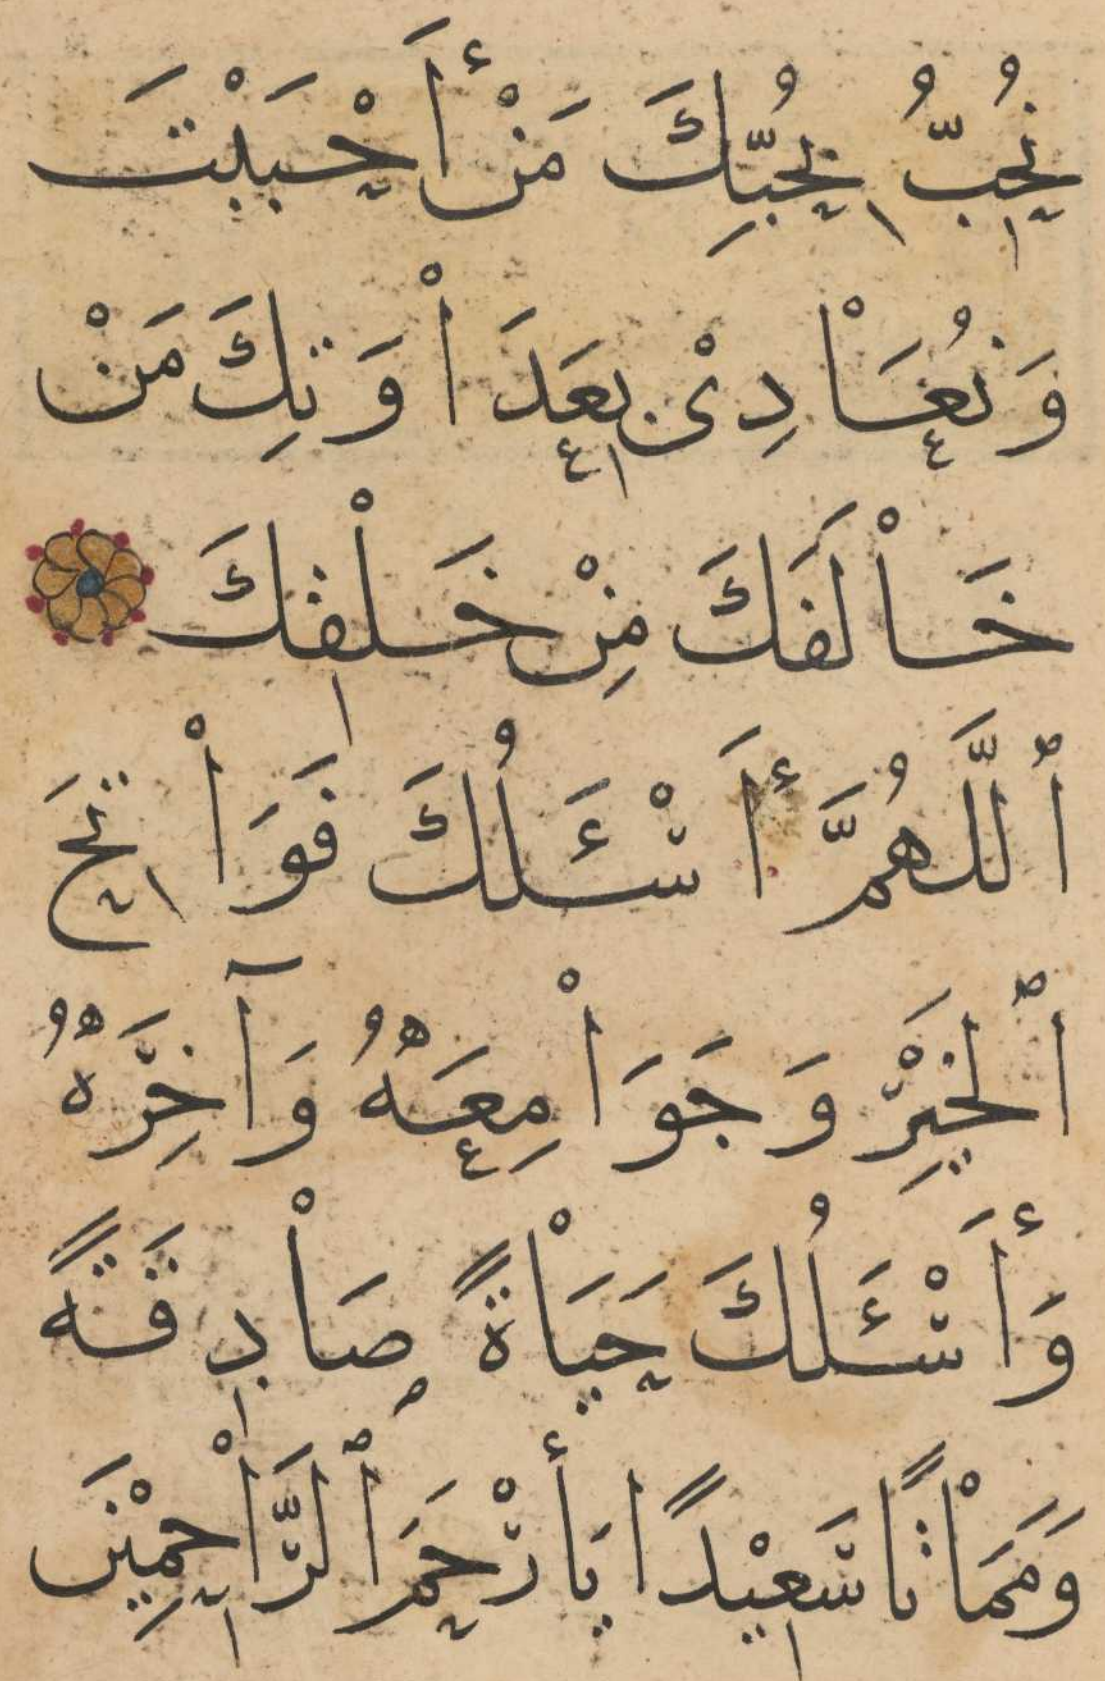 نُحِبُّ بِحُبِّكَ مَنْ أَحْبَبْتَ
وَنُعَاْدِىْ بِعَدَاْوَتِكَ مَنْ
خَاْلَفَكَ مِنْ خَلْقِكَ
ٱللَّهُمَّ أَسْئَلُكَ فَوَاْتِحَ
ٱلْخَيْرِ وَجَوَاْمِعَهُ وَآخِرَهُ
وَأَسْئَلُكَ حَيَاْةً صَاْدِقَةً
وَمَمَاْتًا سَعِيْدًا يَا أَرْحَمَ ٱلرَّاْحِمِيْنَ